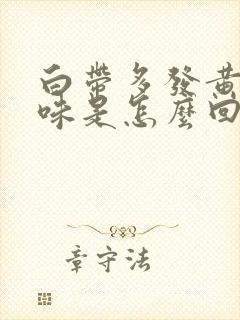 白帶多發黃
味是怎麼回
章守法